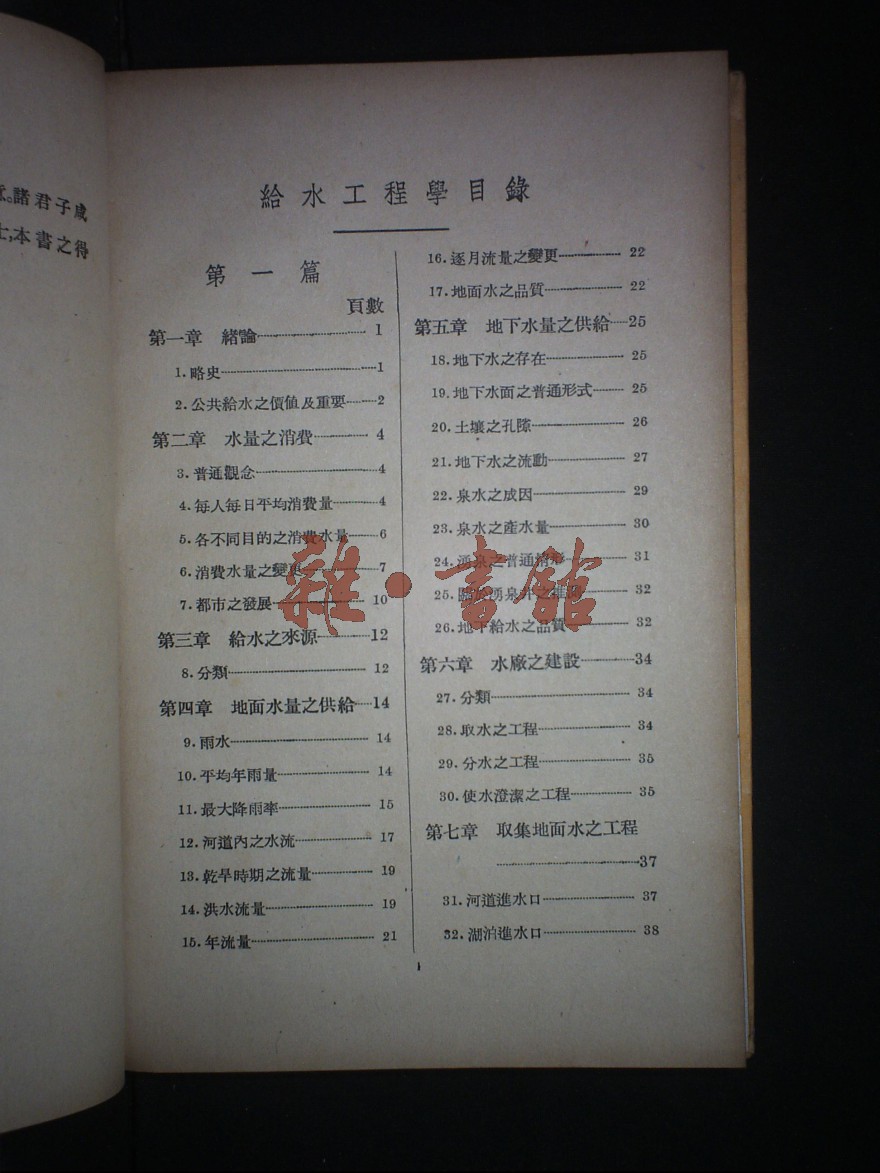 諸君子咸
本書之得
給水工程學目錄
第一篇
頁數
第一章 緒論 1
1. 略史 1
2. 公共給水之價值及重要 2
第二章 水量之消費 4
3. 普通觀念 4
4. 每人每日平均消費量 4
5. 各不同目的之消費水量 6
6. 消費水量之變更 7
7. 都市之發展 10
第三章 給水之來源 12
8. 分類 12
第四章 地面水量之供給 14
9. 雨水 14
10. 平均年雨量 14
11. 最大降雨率 15
12. 河道內之水流 17
13. 乾旱時期之流量 19
14. 洪水流量 19
15. 年流量 21
16. 逐月流量之變更 22
17. 地面水之品質 22
第五章 地下水量之供給 25
18. 地下水之存在 25
19. 地下水面之普通形式 25
20. 土壤之孔隙 26
21. 地下水之流動 27
22. 泉水之成因 29
23. 泉水之產水量 30
24. 湧泉之普通情形 31
25. 關於湧泉井之 32
26. 地下給水之品質 32
第六章 水廠之建設 34
27. 分類 34
28. 取水之工程 34
29. 分水之工程 35
30. 使水澄潔之工程 35
第七章 取集地面水之工程
37
31. 河道進水口 37
32. 湖泊進水口 38
1
雜·書館